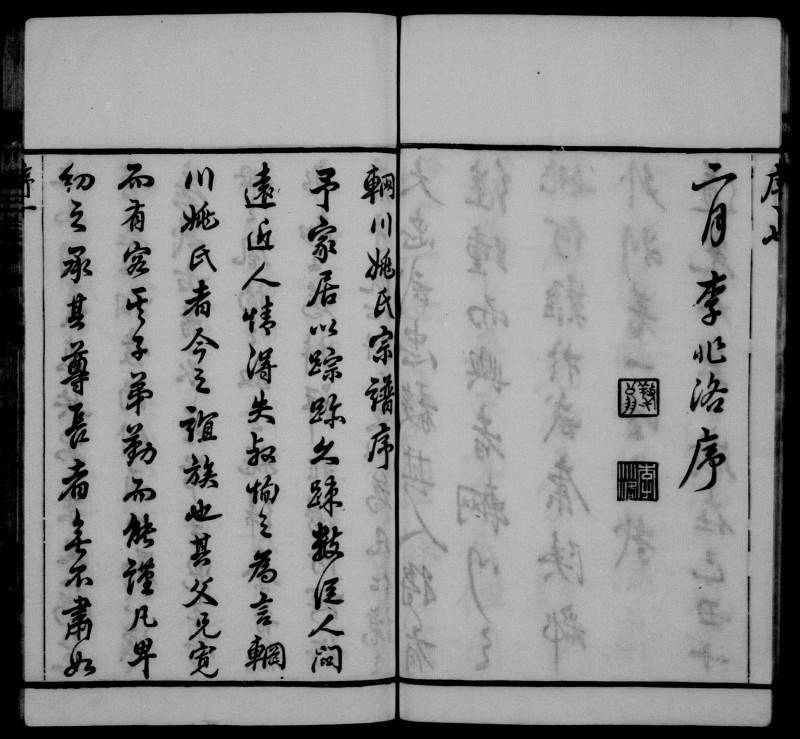 二月李兆洛序
輞川姚氏宗譜序
予家居以踪跡久踈數從人問
遠近人情得失叔恂之為言輞
川姚氏者今之誼族也其父兄寬
而有容其子弟勤而能謹凡卑
幼之承其尊長者無不肅如